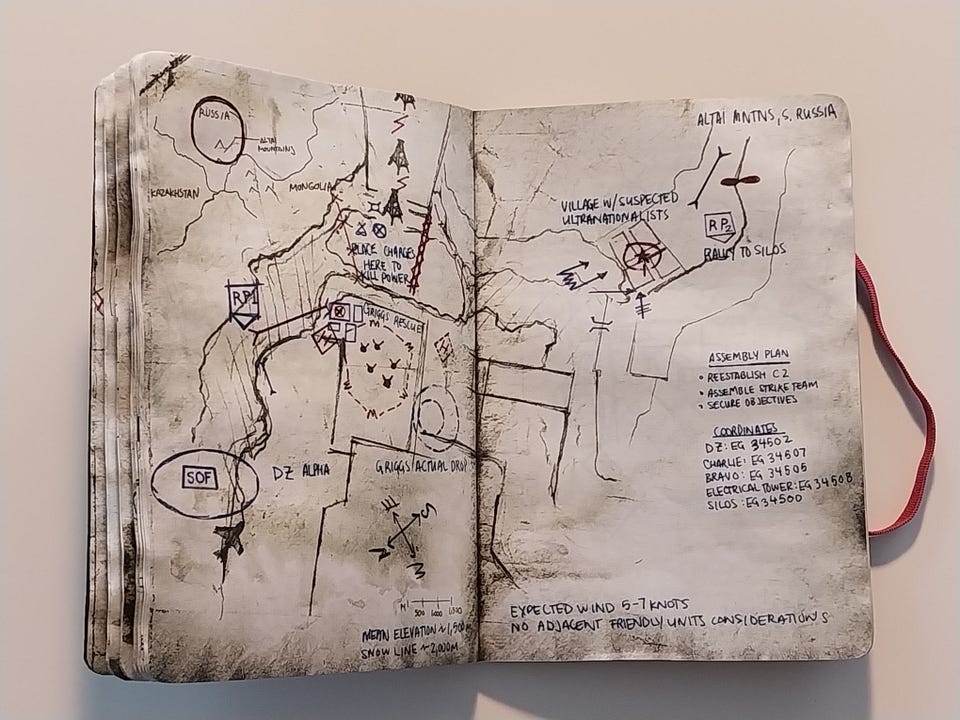 RUSSIA
ALTAI
MOUNTAINS
KAZAKHSTAN
MONGOLIA
PLACE CHARGES
HERE TO
KILL POWER
RP1
GRIGGS RESCUE
M
M
M
SOF
DZ ALPHA
GRIGGS ACTUAL DROP
E
S
N
W
M
500 1,000 1,500
MEAN ELEVATION ~1,500M
SNOW LINE ~2,000M
ALTAI MNTNS, S. RUSSIA
VILLAGE W/SUSPECTED
ULTRANATIONALISTS
RP2
RALLY TO SILOS
ASSEMBLY PLAN
• REESTABLISH C2
• ASSEMBLE STRIKE TEAM
• SECURE OBJECTIVES
COORDINATES
DZ: EG 34502
CHARLIE: EG 34507
BRAVO: EG 34505
ELECTRICAL TOWER: EG 34508
SILOS: EG 34500
EXPECTED WIND 5-7 KNOTS
NO ADJACENT FRIENDLY UNITS CONSIDERATIONS